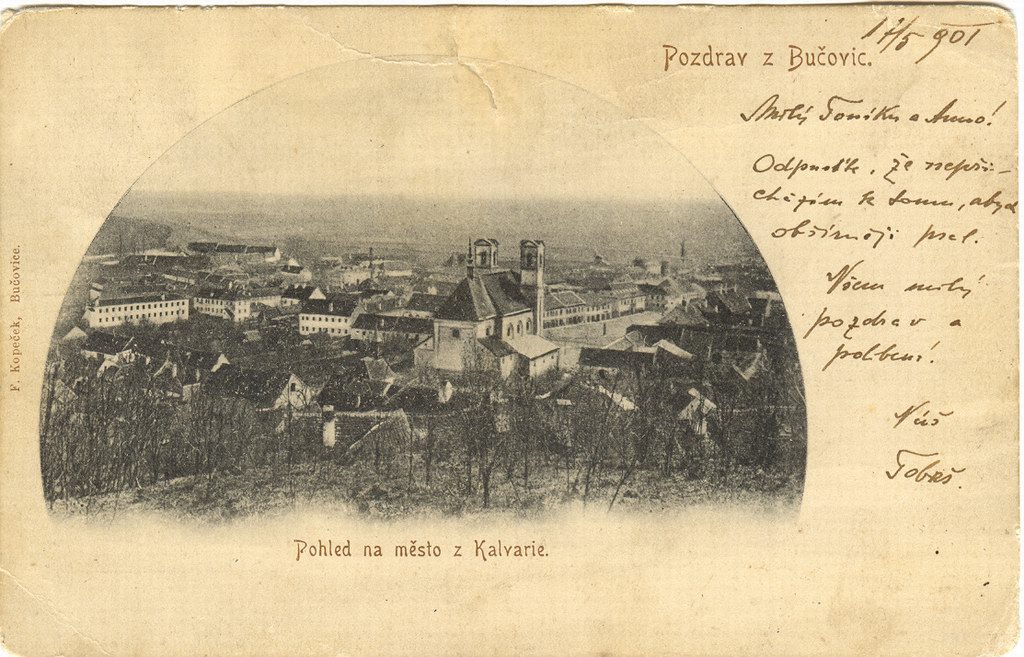 17/5 901
Pozdrav z Bučovic.
Milý Toníku a Anno!
Odpusťte, že nepři-
cházím k tomu, abych
obšírněji psal.
Všem milý
pozdrav a
políbení.
Váš
F. Kopeček, Bučovice.
Pohled na město z Kalvarie.